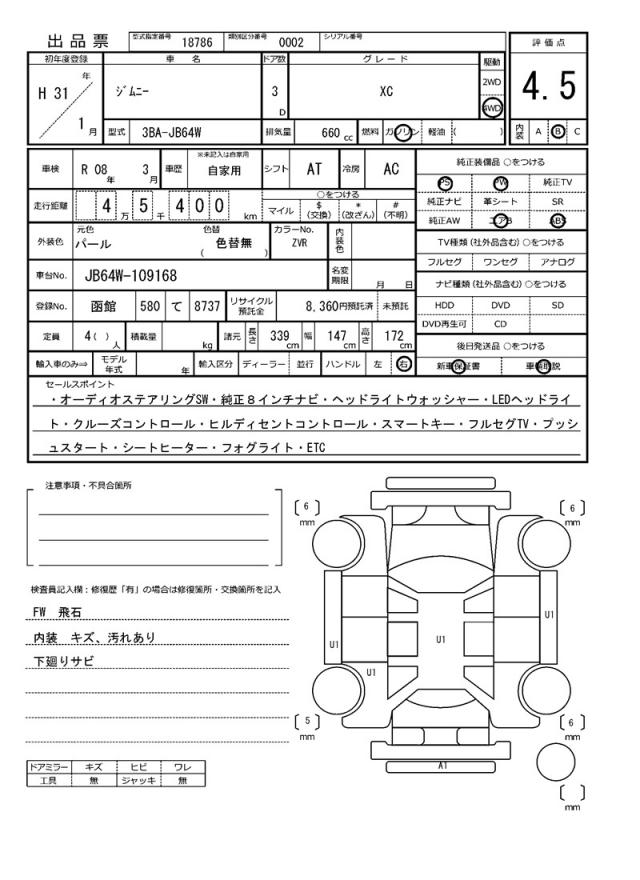 出品票 型式指定番号 18786 類別区分番号 0002 シリアル番号
評価点
4.5
内装 A B C
初年度登録 車名 ドア数 グレード 駆動
H 31 年 1 月 ジムニー 3 D XC 2WD 4WD
型式 3BA-JB64W 排気量 660 cc 燃料 ガソリン 軽油 ( )
車検 R 08 年 3 月 車歴 ※未記入は自家用 自家用 シフト AT 冷房 AC
走行距離 4 万 5 千 4 0 0 km
○をつける
マイル $ (交換) * (改ざん) # (不明)
外装色 元色 パール 色替 色替無 ( ) カラーNo. ZVR 内装色
車台No. JB64W-109168 名変期限 月 日
登録No. 函館 580 て 8737 リサイクル預託金 8,360円預託済 未預託
定員 4( ) 人 積載量 kg 諸元 長さ 339 cm 幅 147 cm 高さ 172 cm
輸入車のみ⇒ モデル年式 年 輸入区分 ディーラー 並行 ハンドル 左 右
純正装備品 ○をつける
PS PW 純正TV
純正ナビ 革シート SR
純正AW エアB ABS
TV種類 (社外品含む) ○をつける
フルセグ ワンセグ アナログ
ナビ種類 (社外品含む) ○をつける
HDD DVD SD
DVD再生可 CD
後日発送品 ○をつける
新車保証書 車輌取説
セールスポイント
・オーディオステアリングSW・純正8インチナビ・ヘッドライトウォッシャー・LEDヘッドライ
ト・クルーズコントロール・ヒルディセントコントロール・スマートキー・フルセグTV・プッシ
ュスタート・シートヒーター・フォグライト・ETC
注意事項・不具合箇所
検査員記入欄：修復歴「有」の場合は修復箇所・交換箇所を記入
FW 飛石
内装 キズ、汚れあり
下廻りサビ
ドアミラー キズ ヒビ ワレ
工具 無 ジャッキ 無
[ 6 ] mm
[ 6 ] mm
U1
U1
U1
U1
[ 5 ] mm
[ 6 ] mm
A1
[ ] mm